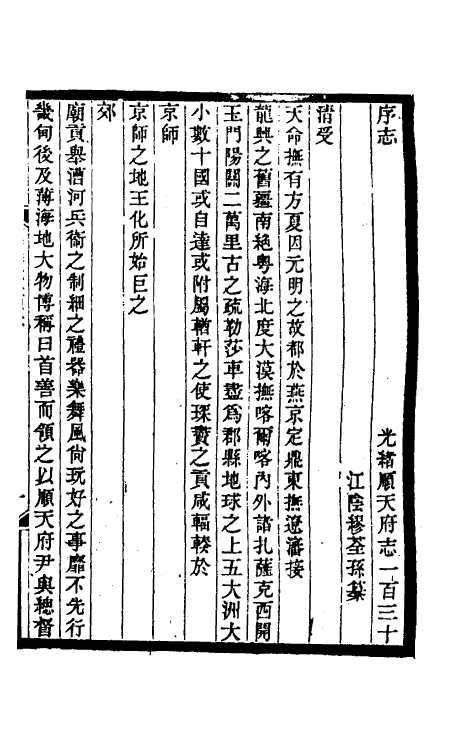 序志　光緒順天府志一百三十
江陰繆荃孫纂
清受
天命撫有方夏因元明之故都於燕京定鼎東撫遼瀋接
龍興之舊疆南絶粤海北度大漠撫喀爾喀內外諸扎薩克西開
玉門陽關二萬里古之疏勒莎車盡爲郡縣地球之上五大洲大
小數十國或自達或附屬輶軒之使琛賮之貢咸輻輳於
京師
京師之地王化所始巨之
郊
廟貢舉漕河兵衞之制細之禮器樂舞風尙玩好之事靡不先行
畿甸後及薄海地大物博稱曰首善而領之以順天府尹與總督